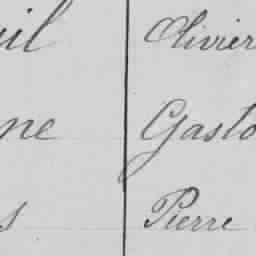 il Olivier
ne Gasto
s Pierre